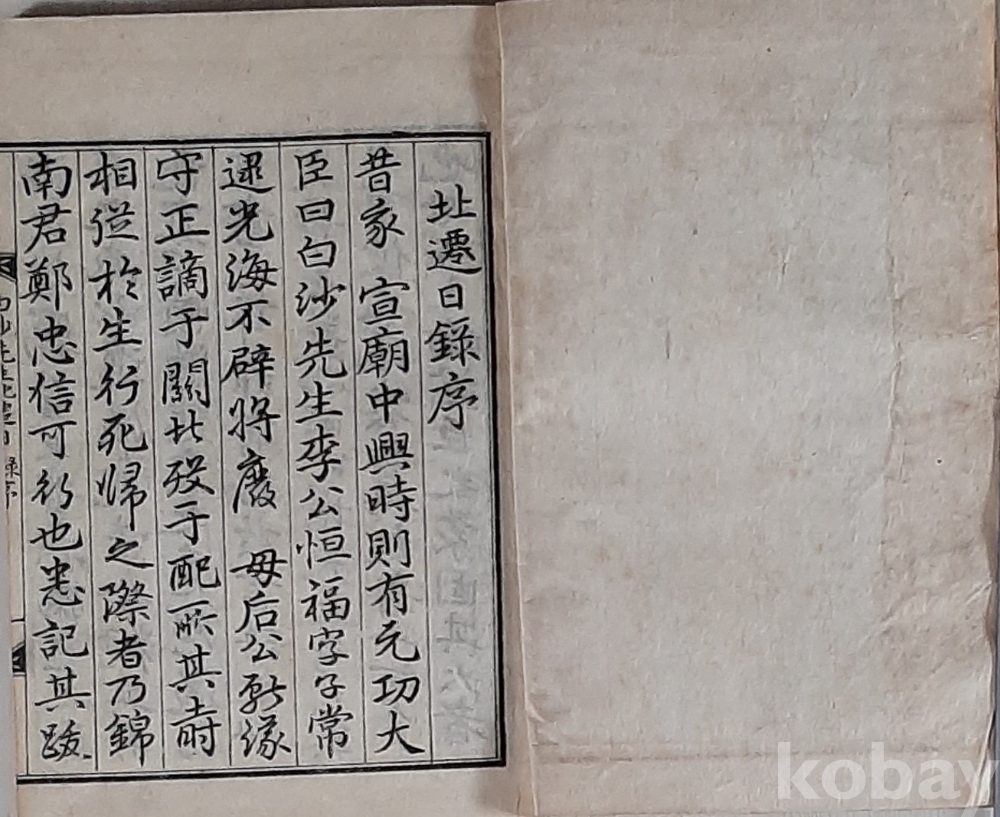 北遷日錄序
昔家 宣廟中興時則有元功大
臣曰白沙先生李公恒福字子常
逮光海不辟將廢 母后公
守正謫于關北歿于配所其時
相從於生行死歸之際者乃錦
南君鄭忠信可行也悉記其跋
白沙先生北遷日錄序
kobay